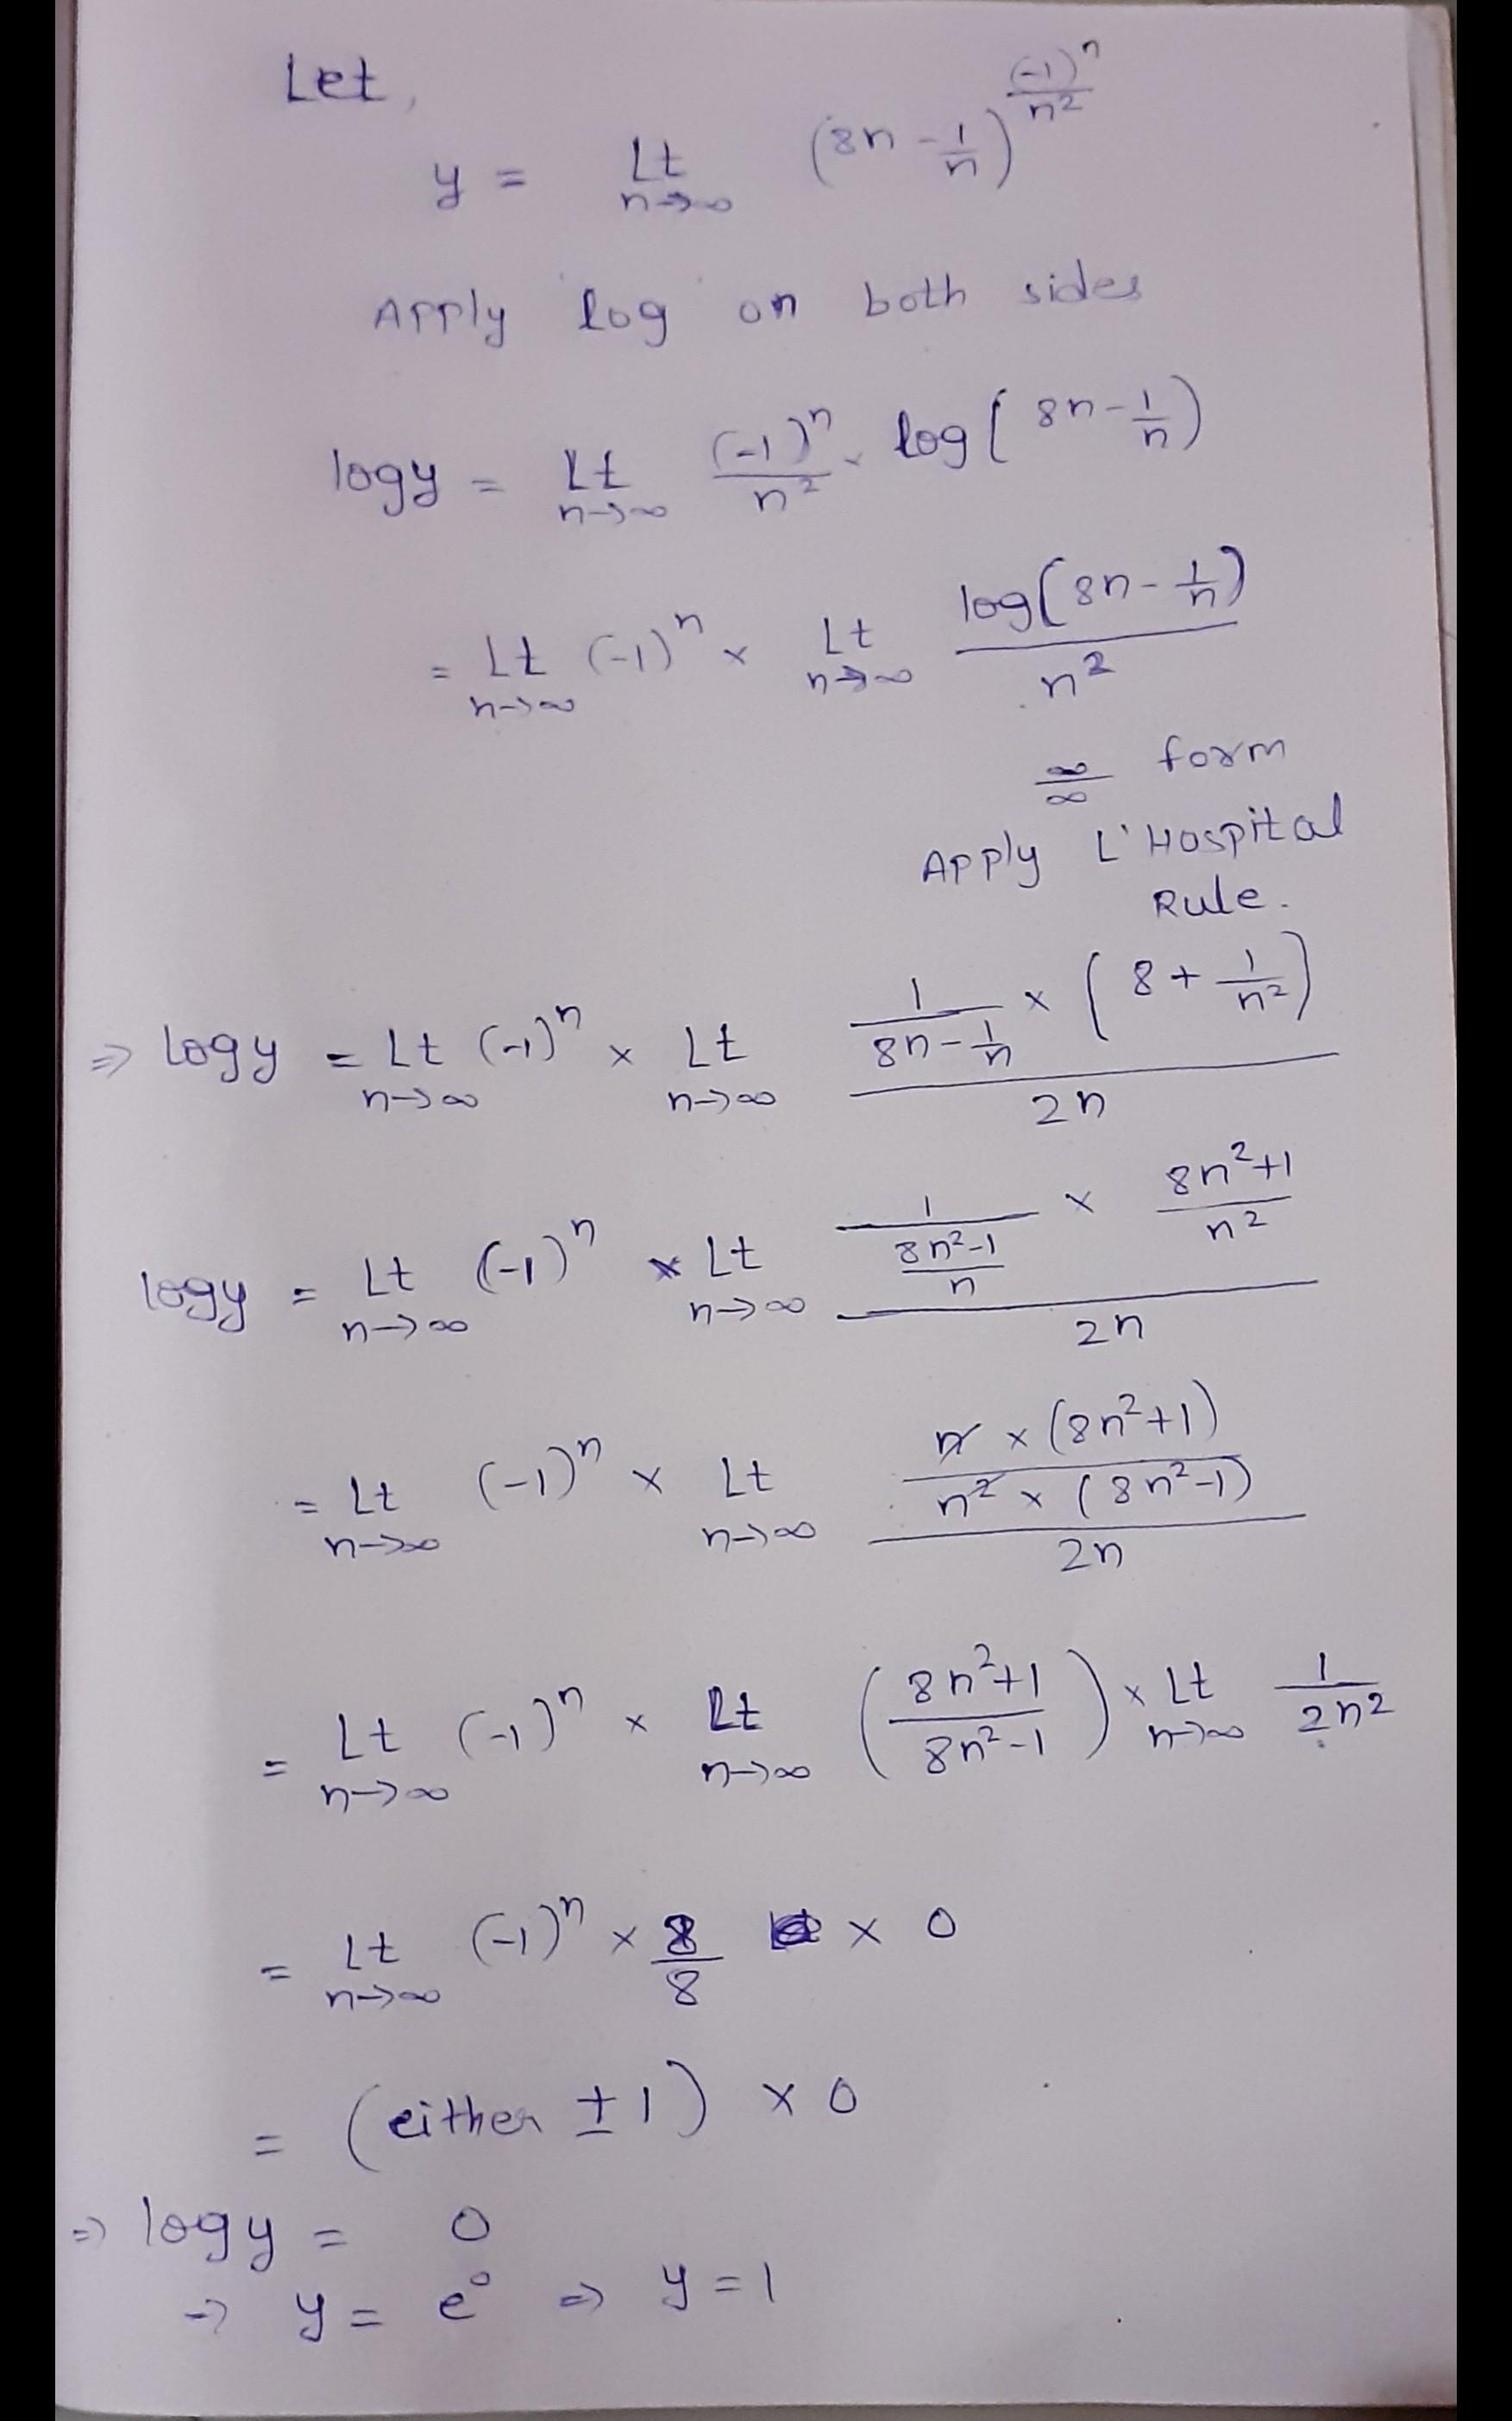 Let,
y = Lt n→∞ (8n - 1/n)^((-1)^n/n²)
Apply log on both sides
logy = Lt n→∞ (-1)^n/n² · log(8n - 1/n)
= Lt n→∞ (-1)^n × Lt n→∞ log(8n - 1/n)/n²
∞/∞ form
Apply L'Hospital
Rule.
⇒ logy = Lt n→∞ (-1)^n × Lt n→∞ (1/(8n - 1/n) × (8 + 1/n²))/2n
logy = Lt n→∞ (-1)^n × Lt n→∞ (1/((8n²-1)/n) × (8n²+1)/n²)/2n
= Lt n→∞ (-1)^n × Lt n→∞ ((n × (8n²+1))/(n² × (8n²-1)))/2n
= Lt n→∞ (-1)^n × Lt n→∞ ((8n²+1)/(8n²-1)) × Lt n→∞ 1/2n²
= Lt n→∞ (-1)^n × 8/8 × 0
= (either ±1) × 0
⇒ logy = 0
→ y = e⁰ ⇒ y = 1